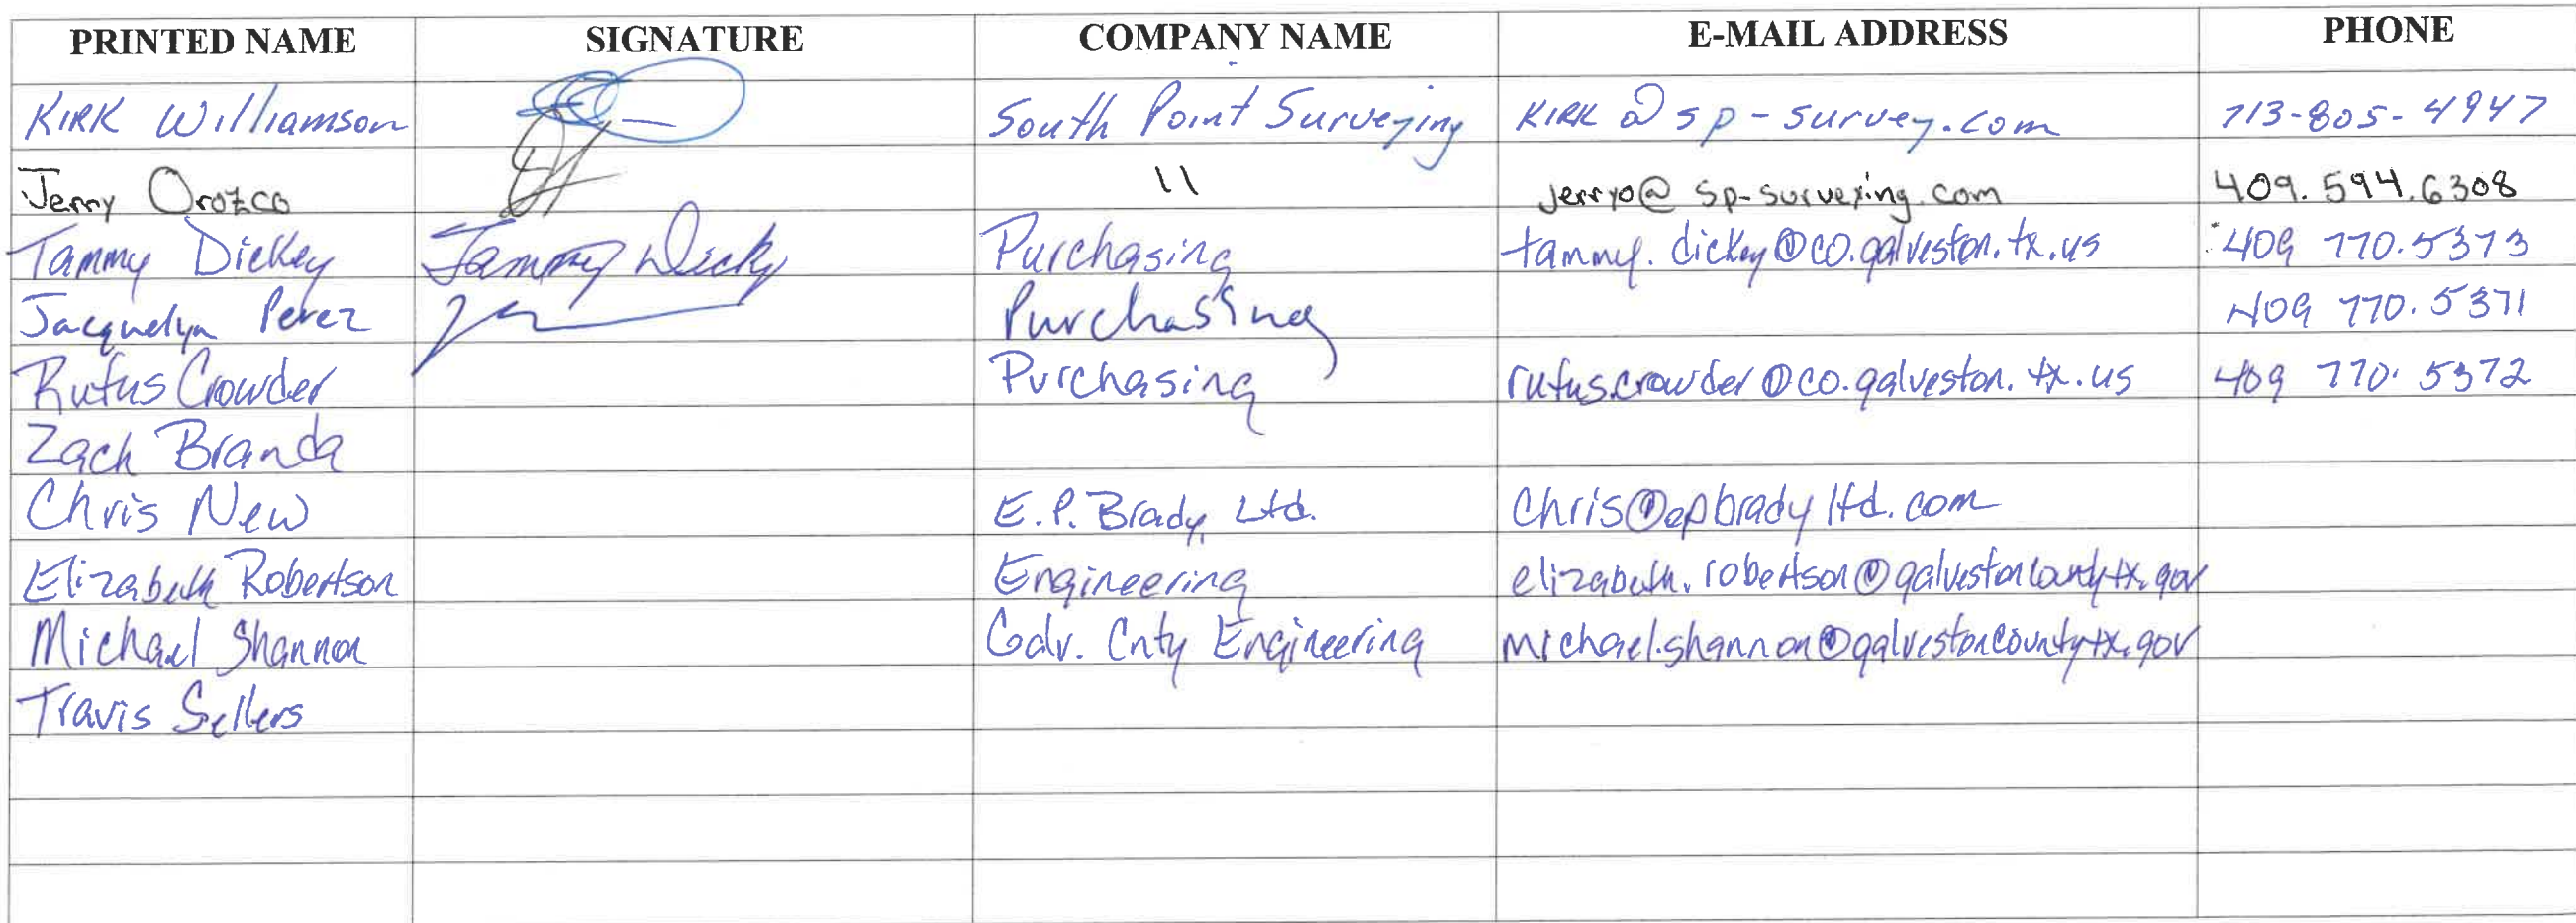 PRINTED NAME SIGNATURE COMPANY NAME E-MAIL ADDRESS PHONE
KIRK Williamson South Point Surveying KIRK @ sp-survey.com 713-805-4947
Jerry Orozco 11 jerryo@ sp-surveying.com 409.594.6308
Tammy Dickey Tammy Dicky Purchasing tammy.dickey@co.galveston.tx.us 409 770.5373
Jacquelyn Perez Purchasing 409 770.5371
Rufus Crowder Purchasing rufus.crowder@co.galveston.tx.us 409 770.5372
Zach Branda
Chris New E.P. Brady, Ltd. Chris@epbradyltd.com
Elizabeth Robertson Engineering elizabeth.robertson@galvestoncountytx.gov
Michael Shannon Galv. Cnty Engineering michael.shannon@galvestoncountytx.gov
Travis Sellers